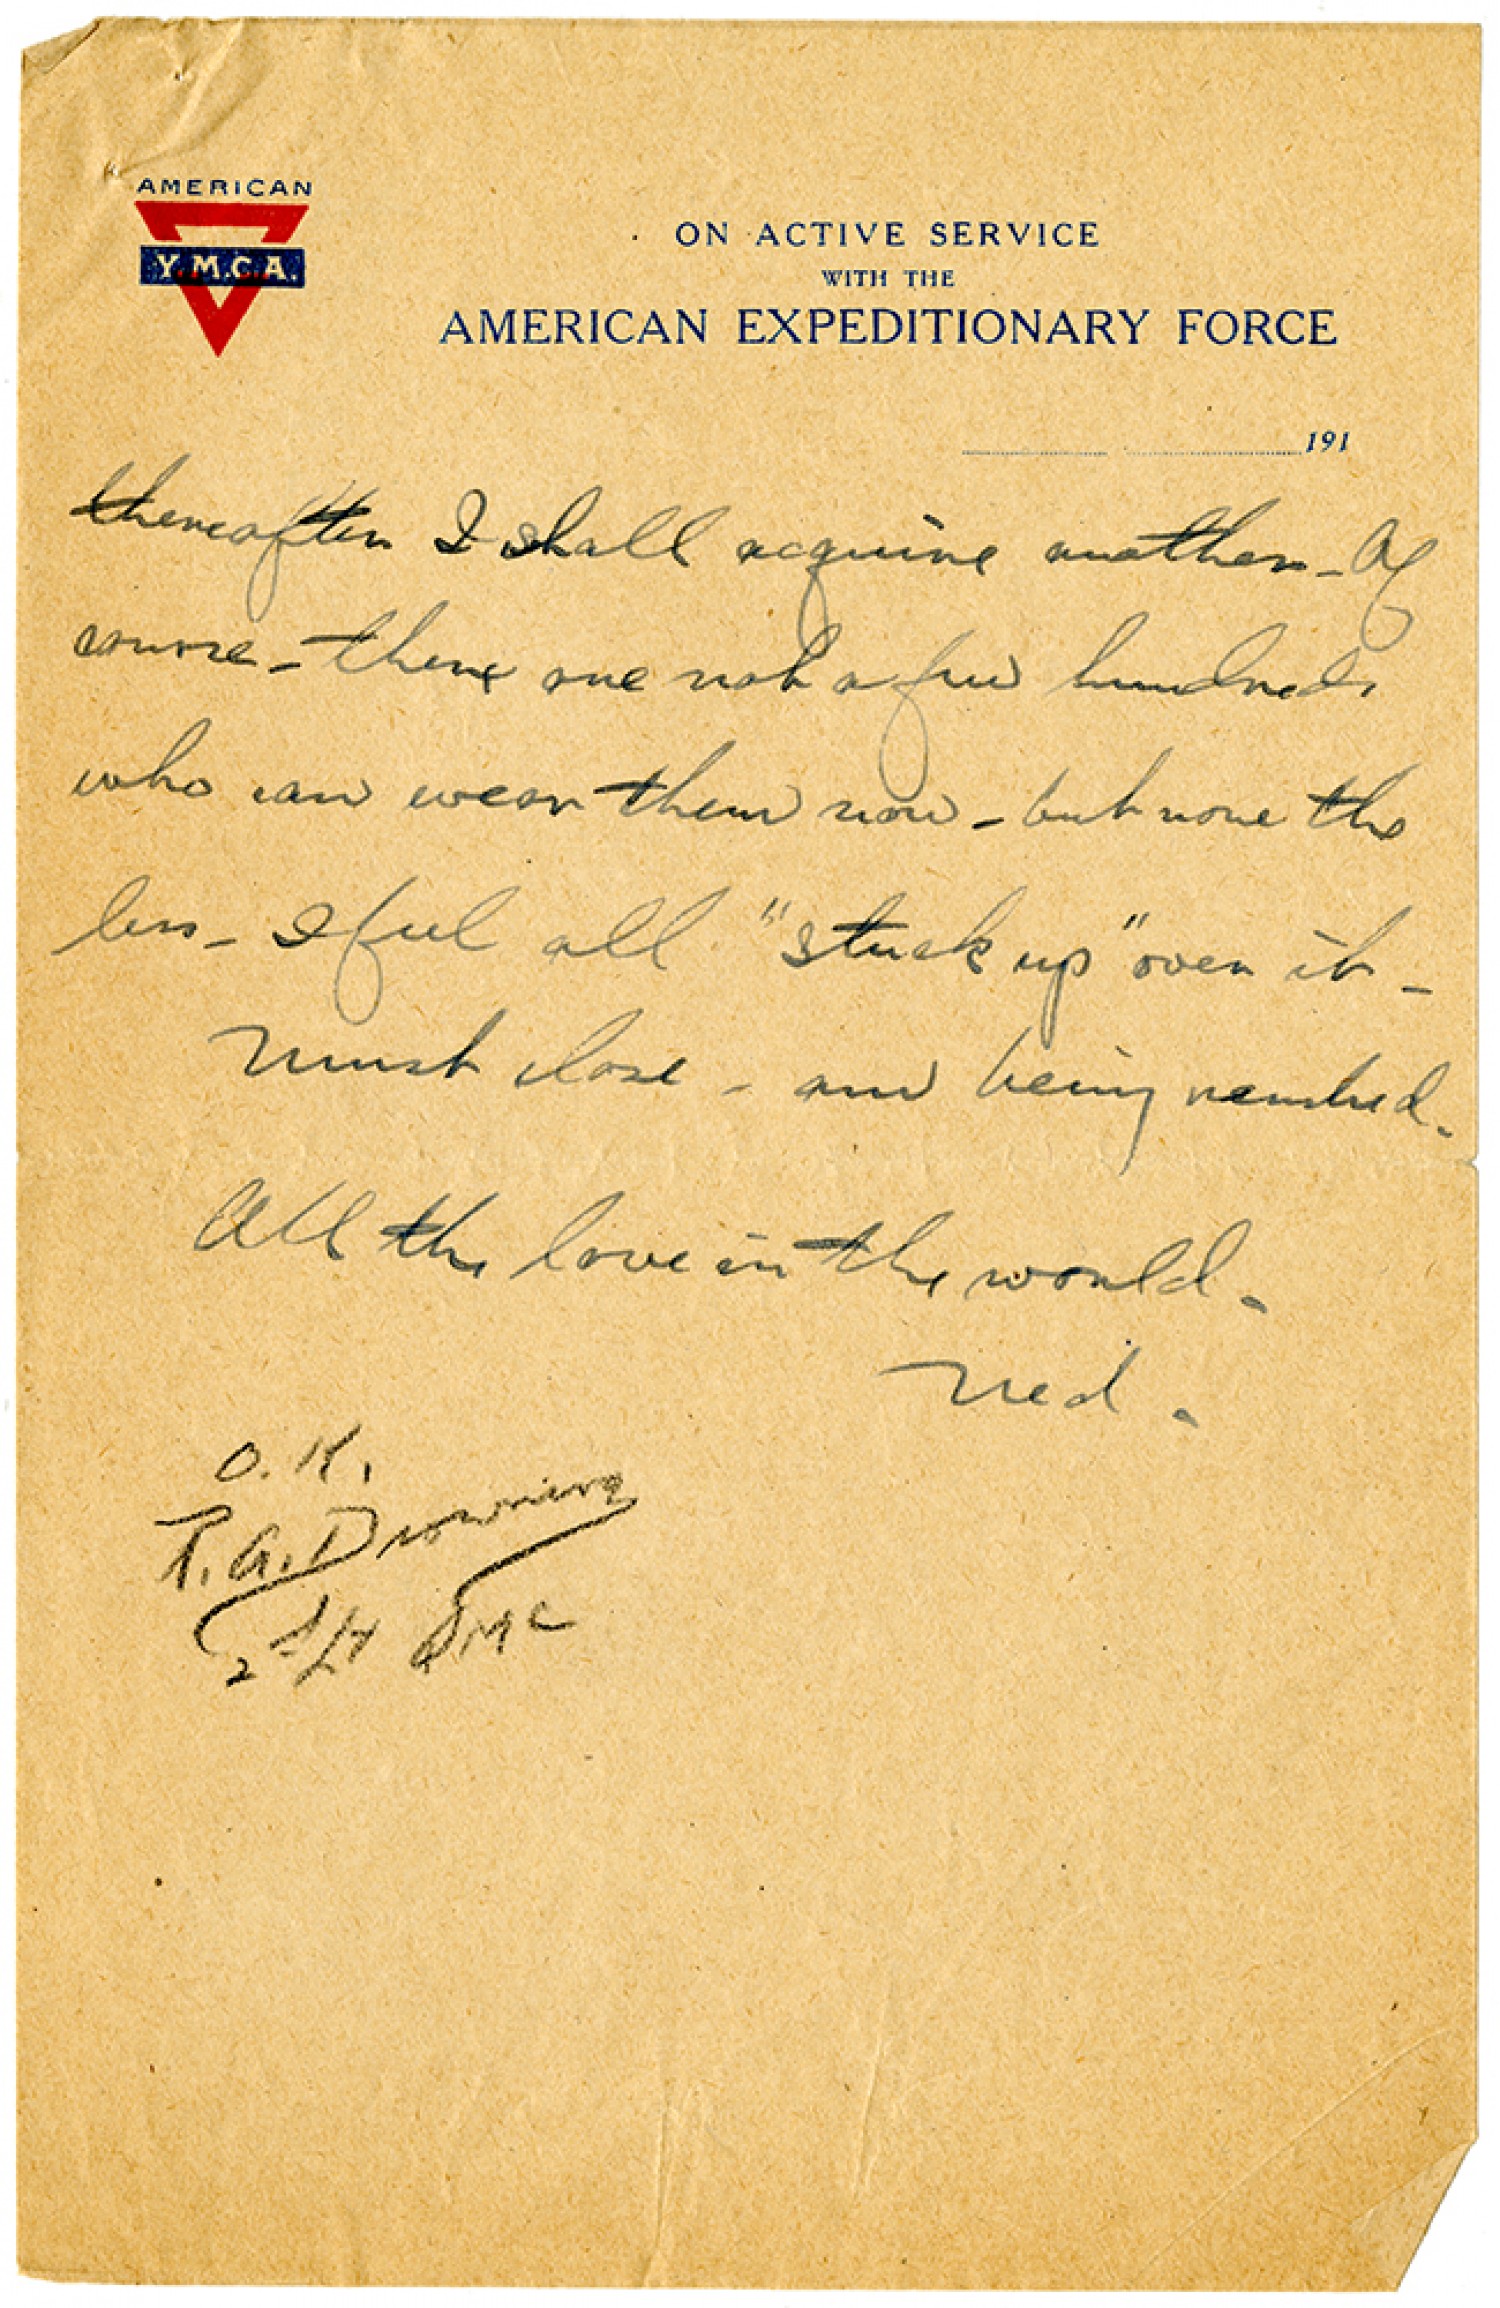 AMERICAN
Y.M.C.A.
ON ACTIVE SERVICE
WITH THE
AMERICAN EXPEDITIONARY FORCE
191
thereafter I shall acquire another - Of
course - there are not a few hundreds
who can wear them now - but none the
less - I feel all "stuck up" over it -
Must close - am being rushed.
All the love in the world -
Ned -
O.K.
R.A. Downing
2nd Lt QMC